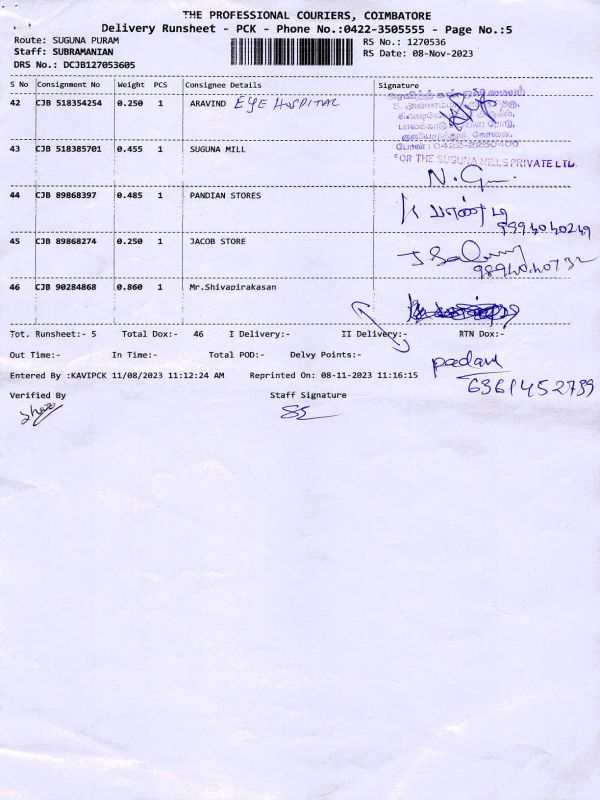 THE PROFESSIONAL COURIERS, COIMBATORE
Delivery Runsheet - PCK - Phone No.:0422-3505555 - Page No.:5
Route: SUGUNA PURAM RS No.: 1270536
Staff: SUBRAMANIAN RS Date: 08-Nov-2023
DRS No.: DCJB127053605
S No Consignment No Weight PCS Consignee Details Signature
42 CJB 518354254 0.250 1 ARAVIND EYE HOSPITAL
போன் : 0422-2250400
43 CJB 518385701 0.455 1 SUGUNA MILL
FOR THE SUGUNA MILLS PRIVATE LTD.
N. G
44 CJB 89868397 0.485 1 PANDIAN STORES
45 CJB 89868274 0.250 1 JACOB STORE
46 CJB 90284868 0.860 1 Mr.Shivapirakasan
Tot. Runsheet:- 5 Total Dox:- 46 I Delivery:- II Delivery:- RTN Dox:-
Out Time:- In Time:- Total POD:- Delvy Points:-
Entered By :KAVIPCK 11/08/2023 11:12:24 AM Reprinted On: 08-11-2023 11:16:15
6361452739
Verified By Staff Signature